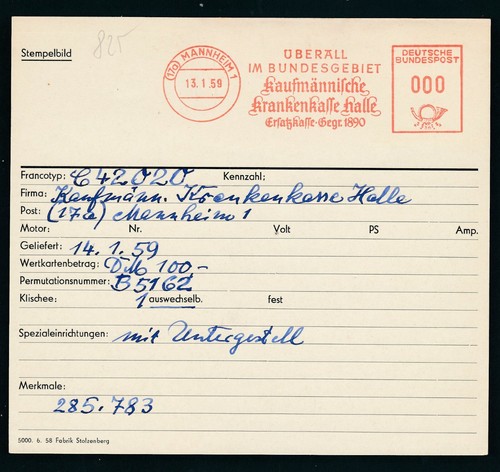 Stempelbild
825
(17a) MANNHEIM 1
13.1.59
ÜBERALL
IM BUNDESGEBIET
Kaufmännische
Krankenkasse Halle
Ersatzkasse·Gegr. 1890
DEUTSCHE
BUNDESPOST
000
Francotyp: C 42020 Kennzahl:
Firma: Kaufmänn. Krankenkasse Halle
Post: (17a) Mannheim 1
Motor: Nr. Volt PS Amp.
Geliefert: 14.1.59
Wertkartenbetrag: DM 100,-
Permutationsnummer: B5162
Klischee: 1 auswechselb. fest
Spezialeinrichtungen: mit Untergestell
Merkmale:
285.783
5000. 6. 58 Fabrik Stolzenberg